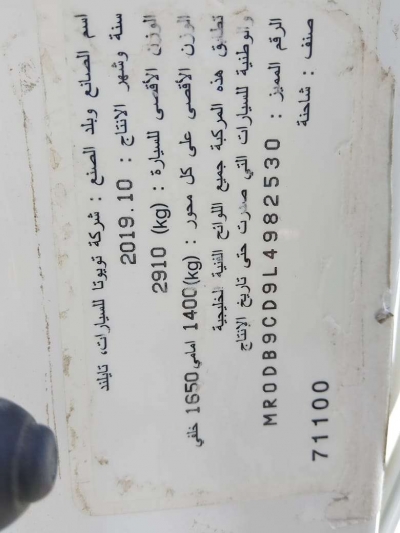 اسم الصانع وبلد الصنع : شركة تويوتا للسيارات، تايلند
سنة وشهر الانتاج : 2019.10
الوزن الأقصى للسيارة : 2910 (kg)
الوزن الأقصى على كل محور : (kg) 1400 امامي 1650 خلفي
تطابق هذه المركبة جميع اللوائح الفنية الخليجية
والوطنية للسيارات التي صدرت حتى تاريخ الإنتاج
الرقم المميز : MR0DB9CD9L4982530
صنف : شاحنة
71100